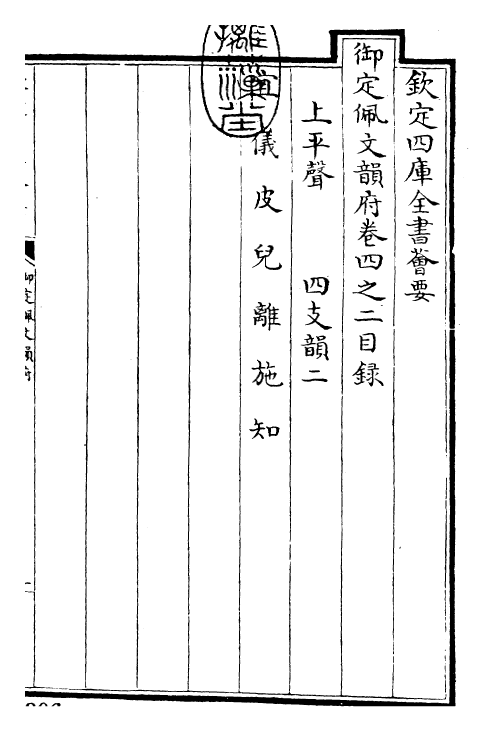 欽定四庫全書薈要
御定佩文韻府卷四之二目録
上平聲　四支韻二
儀　皮　兒　離　施　知
御定佩文韻府